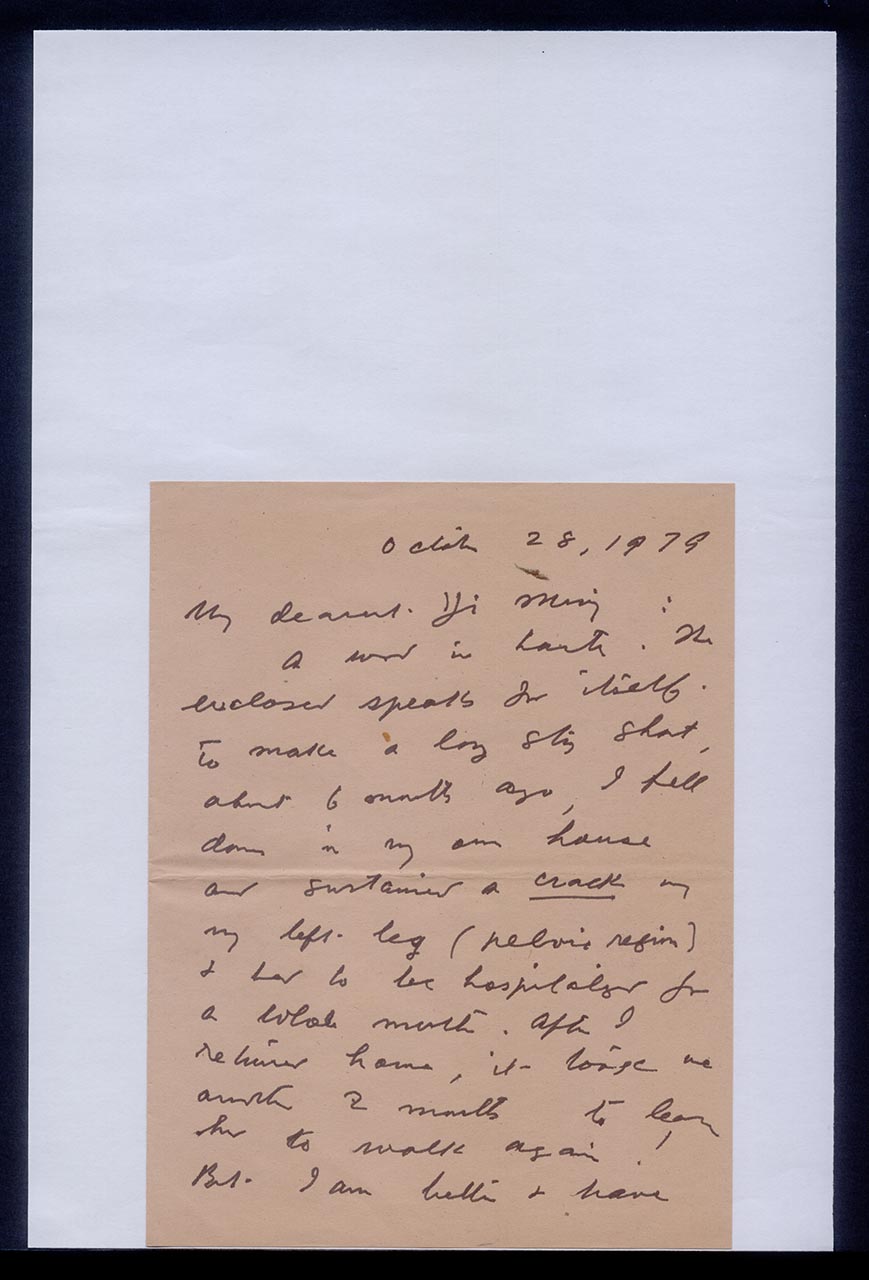 October 28, 1979
My dearest Yi Ming :
A word in haste. The
enclosed speaks for itself.
To make a long story short,
about 6 months ago, I fell
down in my own house
and sustained a crack in
my left leg (pelvic region)
& had to be hospitalized for
a whole month. After I
returned home, it took me
another 2 months to learn
how to walk again!
But I am better & have